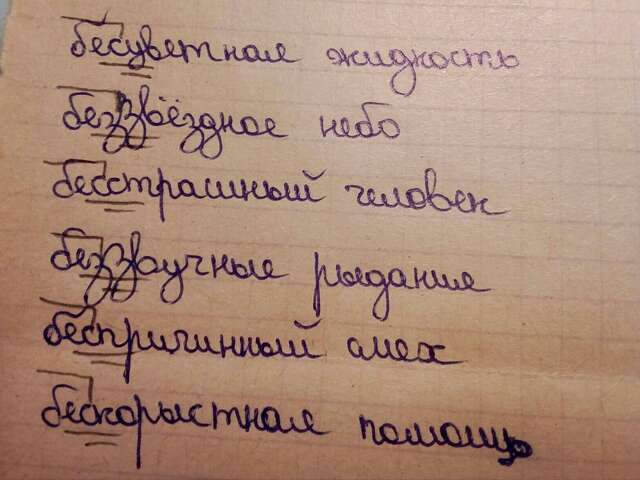 бесцветная жидкость
беззвёздное небо
бесстрашный человек
беззвучные рыдание
беспричинный смех
бескорыстная помощь